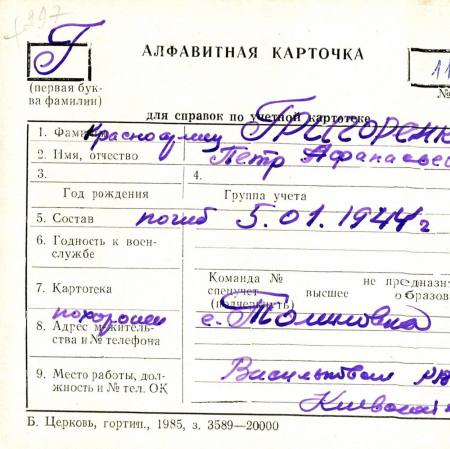 Г
(первая бук-
ва фамилии)
АЛФАВИТНАЯ КАРТОЧКА
11
№
для справок по учетной картотеке
1. Фамилия Красноармеец Григоренк
2. Имя, отчество Петр Афанасьев
3.
4.
Год рождения
Группа учета
5. Состав погиб 5.01.1944 г
6. Годность к воен-
службе
Команда № не предназн
спецучет высшее образов
(подчеркнуть)
7. Картотека
похоронен с.
8. Адрес м жительст-
ва и № телефона
9. Место работы, дол-
жность и № тел. ОК
Б. Церковь, гортип., 1985, з. 3589—20000